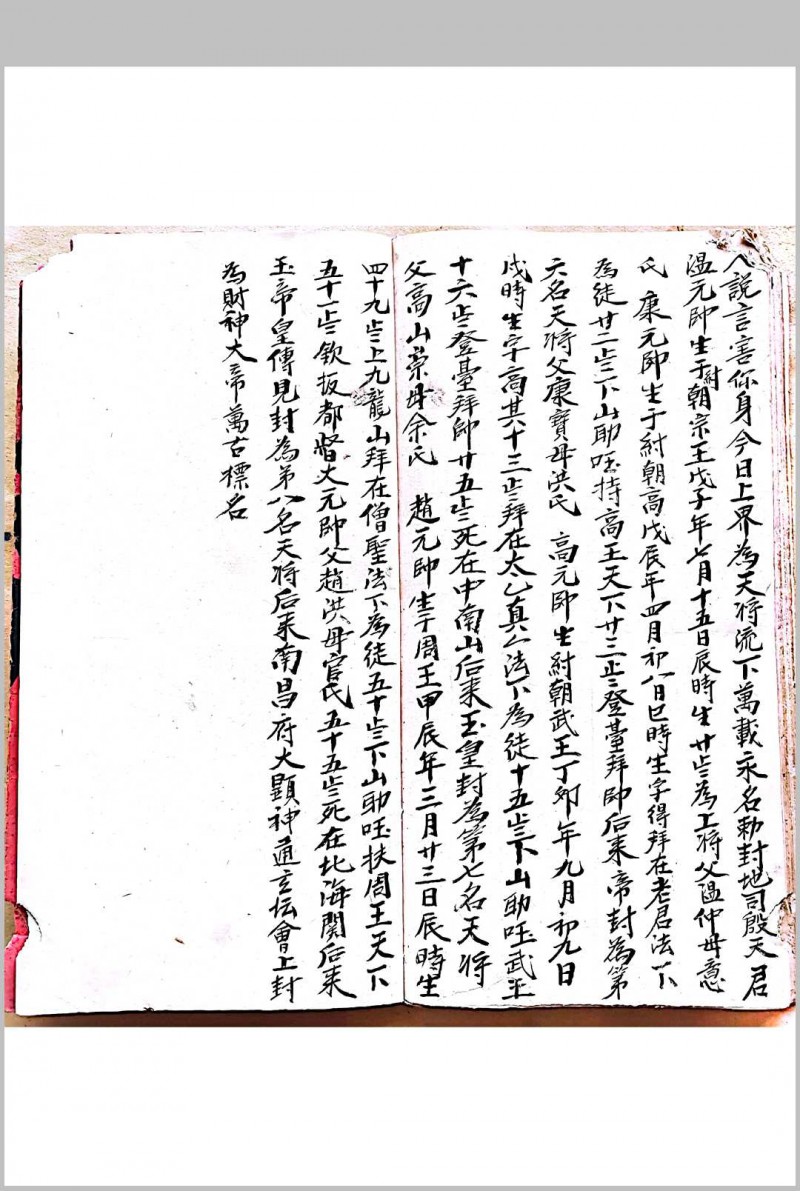 人説言害你身今日上界為天将流下萬載永名勅封地司殷天君
温元帅生于紂朝宗王戊子年七月十五日辰時生廿歩為上将父温仲母意
氏 康元帅生于紂朝高戊辰年四月初八日巳時生字得拜在老君法下
為徒廿二歩下山助 持高王天下廿三歩登臺拜帅后来帝封為第
六名天将父康寶母洪氏 高元帅生紂朝武王丁卯年九月初九日
戌時生字高其十三歩拜在太乙真人法下為徒十五歩下山助 武王
十六歩登臺拜帅廿五歩死在中南山后来玉皇封為第七名天将
父高山崇母余氏 趙元帅生于周王甲辰年三月廿三日辰時生
四十九歩上九龍山拜在僧聖法下為徒五十歩下山助 扶周王天下
五十一歩欽扳都督大元帅父趙洪母官氏五十五歩死在北海関后来
玉帝皇傳見封為第八名天将后来南昌府大顕神通立坛會上封
為財神大帝萬古標名